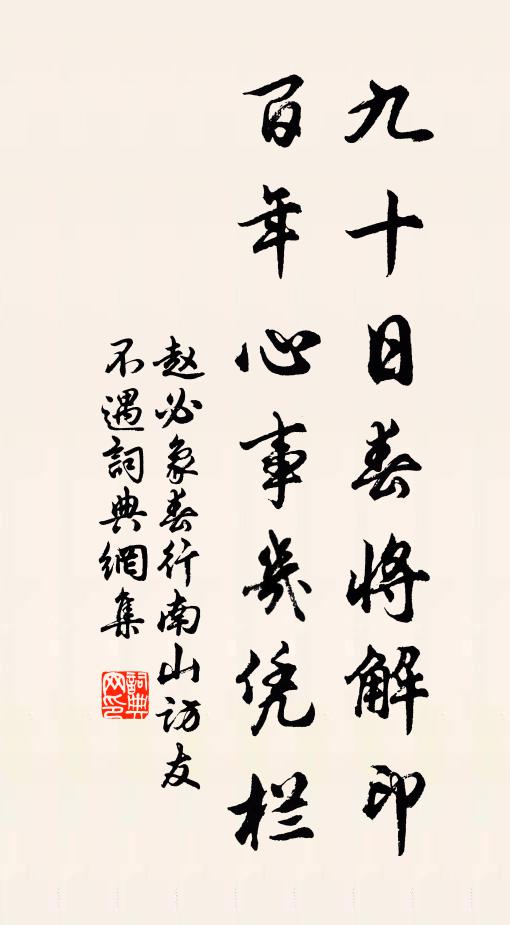 九十日春将解印
百年心事幾凭栏
赵必象春行南山訪友
不遇詞典網集
詞典
网印